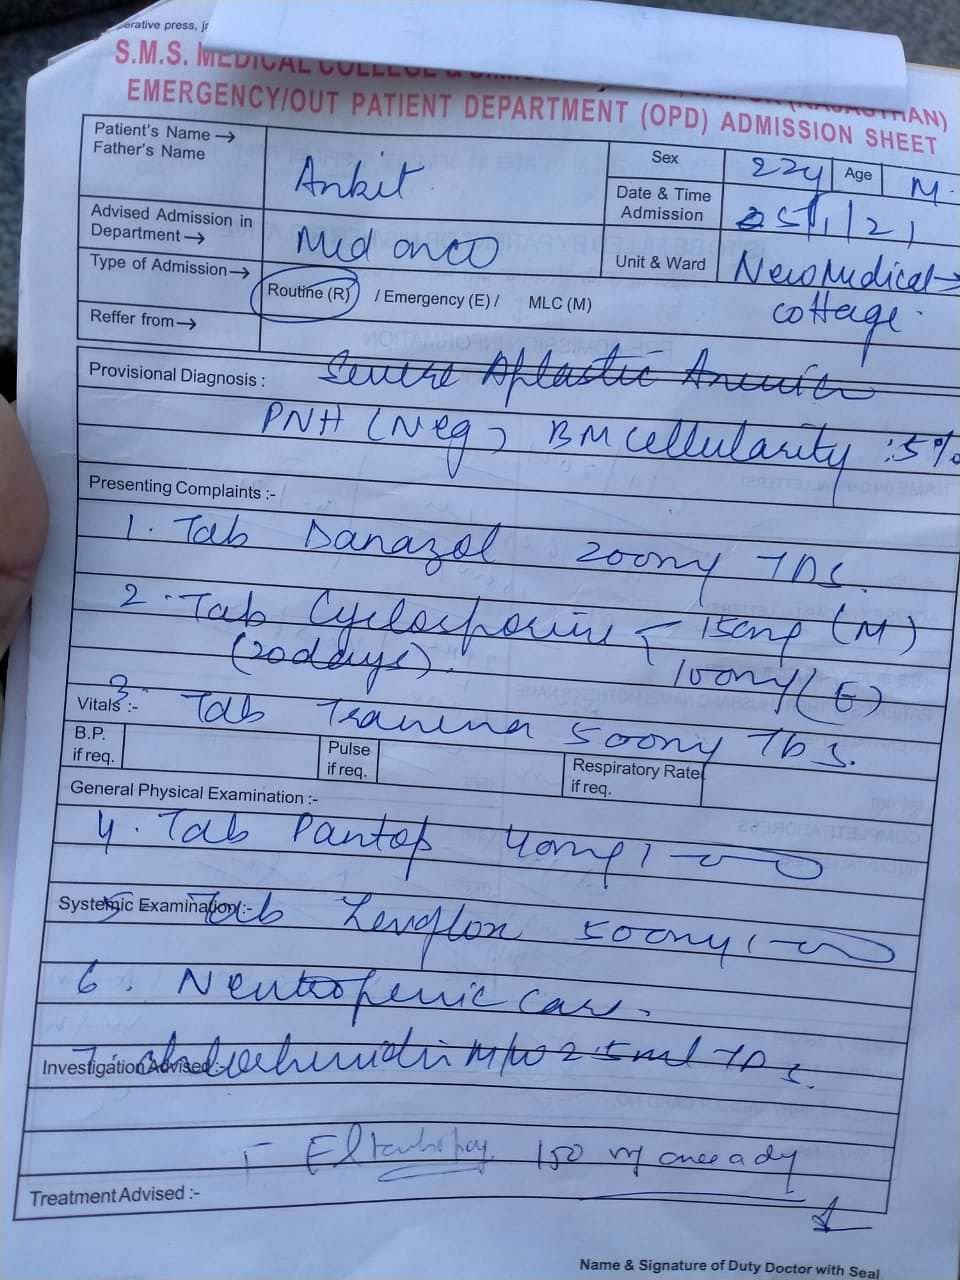 erative press, j
S.M.S. MEDICAL COLLEGE &
EMERGENCY/OUT PATIENT DEPARTMENT (OPD) ADMISSION SHEET
Patient's Name →
Father's Name
Ankit
Sex
22y
Age
M.
Date & Time
Admission
25/1/21
Advised Admission in
Department →
Md onco
Unit & Ward
New Medical →
cottage.
Type of Admission →
Routine (R) / Emergency (E) / MLC (M)
Reffer from →
Provisional Diagnosis :
Severe Aplastic Anemia
PNH (Neg) BM cellularity : 5%
Presenting Complaints :-
1. Tab Danazol 200mg TDS.
2. Tab Cyclosporine 150mg (M)
(20 days). 100mg (E)
Vitals :-
3. Tab 500mg TDS.
B.P.
if req.
Pulse
if req.
Respiratory Rate
if req.
General Physical Examination :-
4. Tab Pantop 40mg 1
Systemic Examination :-
5. Tab 500mg 1
6. Neutropenic Care.
Investigation Advised :-
7. M/W 2.5ml TDS.
150 mg once a dy
Treatment Advised :-
Name & Signature of Duty Doctor with Seal